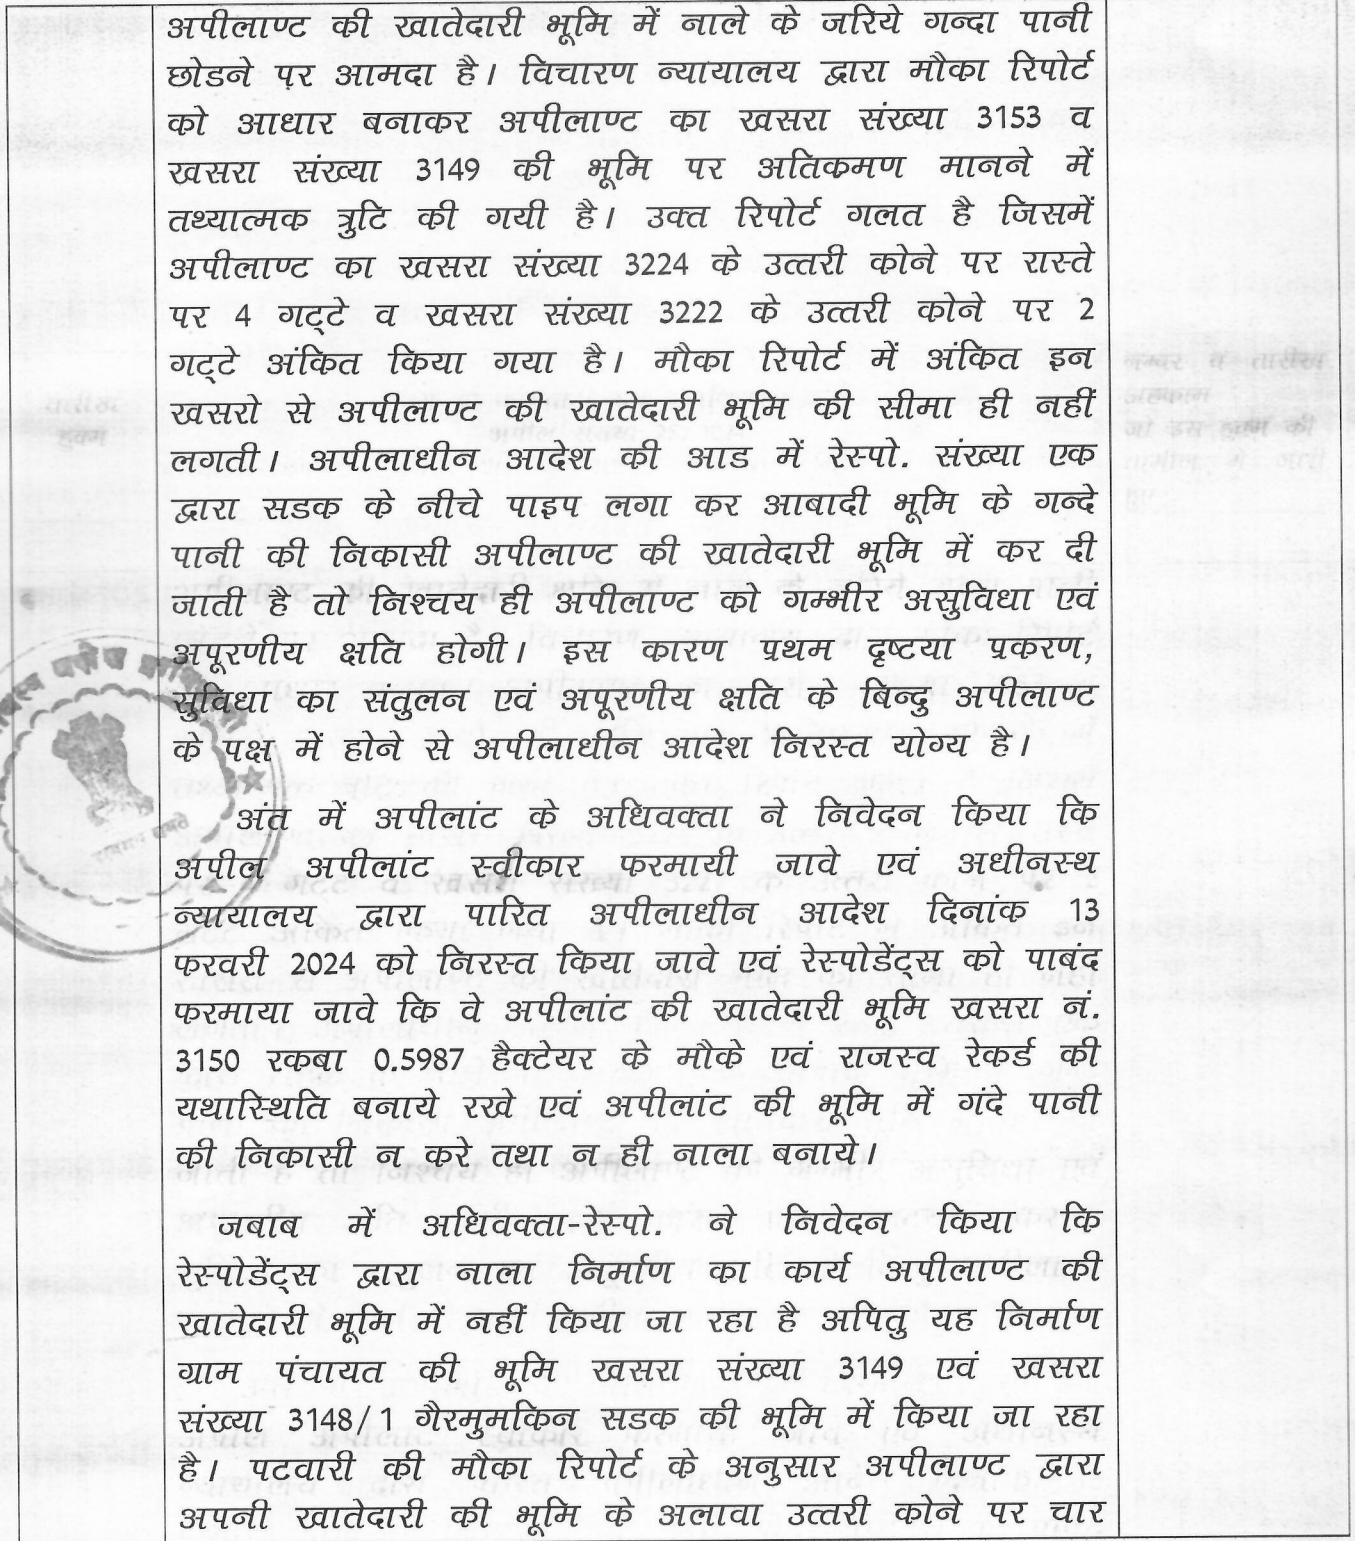 अपीलाण्ट की खातेदारी भूमि में नाले के जरिये गन्दा पानी
छोडने पर आमदा है। विचारण न्यायालय द्वारा मौका रिपोर्ट
को आधार बनाकर अपीलाण्ट का खसरा संख्या 3153 व
खसरा संख्या 3149 की भूमि पर अतिकमण मानने में
तथ्यात्मक त्रुटि की गयी है। उक्त रिपोर्ट गलत है जिसमें
अपीलाण्ट का खसरा संख्या 3224 के उत्तरी कोने पर रास्ते
पर 4 गट्टे व खसरा संख्या 3222 के उत्तरी कोने पर 2
गट्टे अंकित किया गया है। मौका रिपोर्ट में अंकित इन
खसरो से अपीलाण्ट की खातेदारी भूमि की सीमा ही नहीं
लगती। अपीलाधीन आदेश की आड में रेस्पो. संख्या एक
द्वारा सडक के नीचे पाइप लगा कर आबादी भूमि के गन्दे
पानी की निकासी अपीलाण्ट की खातेदारी भूमि में कर दी
जाती है तो निश्चय ही अपीलाण्ट को गम्भीर असुविधा एवं
अपूरणीय क्षति होगी। इस कारण प्रथम दृष्टया प्रकरण,
सुविधा का संतुलन एवं अपूरणीय क्षति के बिन्दु अपीलाण्ट
के पक्ष में होने से अपीलाधीन आदेश निरस्त योग्य है।
अंत में अपीलांट के अधिवक्ता ने निवेदन किया कि
अपील अपीलांट स्वीकार फरमायी जावे एवं अधीनस्थ
न्यायालय द्वारा पारित अपीलाधीन आदेश दिनांक 13
फरवरी 2024 को निरस्त किया जावे एवं रेस्पोडेंट्स को पाबंद
फरमाया जावे कि वे अपीलांट की खातेदारी भूमि खसरा नं.
3150 रकबा 0.5987 हैक्टेयर के मौके एवं राजस्व रेकर्ड की
यथास्थिति बनाये रखे एवं अपीलांट की भूमि में गंदे पानी
की निकासी न करे तथा न ही नाला बनाये।
जबाब में अधिवक्ता-रेस्पो. ने निवेदन किया कि
रेस्पोडेंट्स द्वारा नाला निर्माण का कार्य अपीलाण्ट की
खातेदारी भूमि में नहीं किया जा रहा है अपितु यह निर्माण
ग्राम पंचायत की भूमि खसरा संख्या 3149 एवं खसरा
संख्या 3148/1 गैरमुमकिन सडक की भूमि में किया जा रहा
है। पटवारी की मौका रिपोर्ट के अनुसार अपीलाण्ट द्वारा
अपनी खातेदारी की भूमि के अलावा उत्तरी कोने पर चार